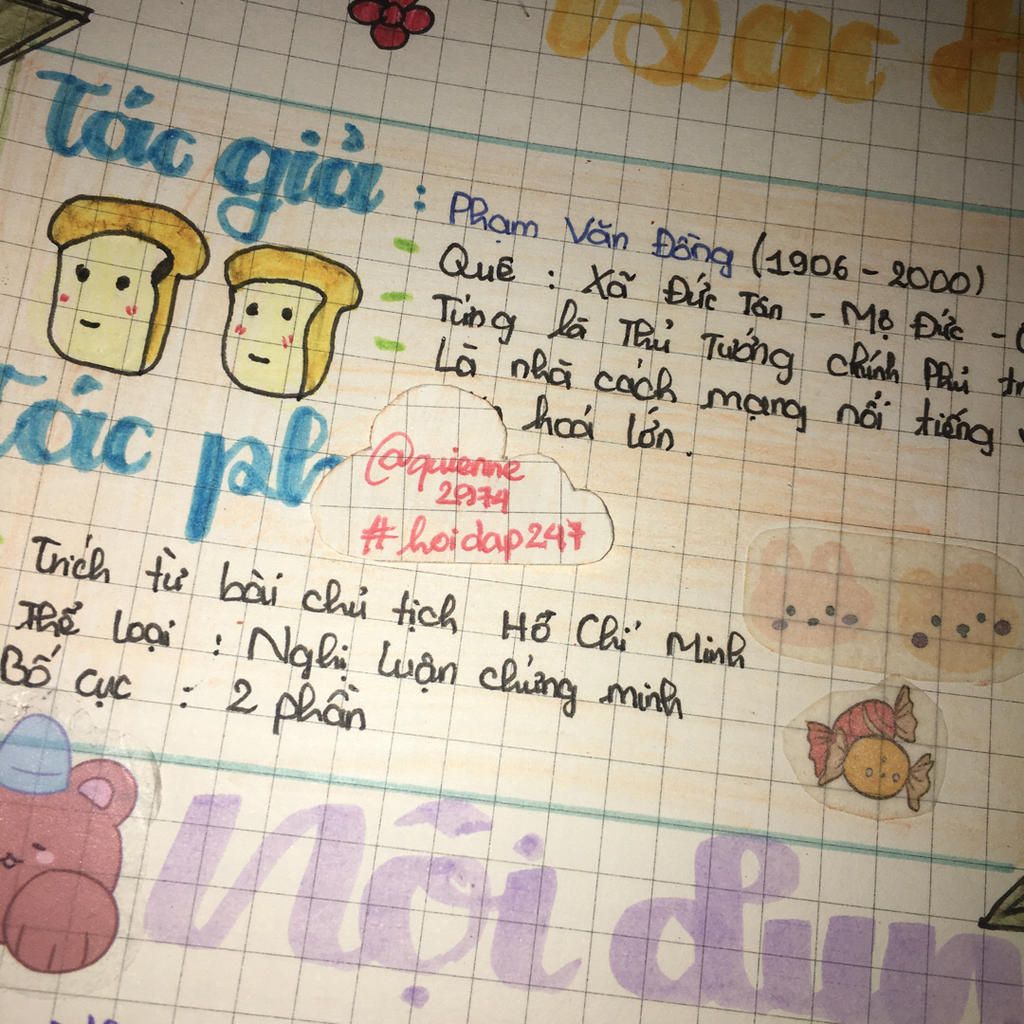 Tác giả : Phạm Văn Đồng (1906 - 2000)
Quê : Xã Đức Tân - Mộ Đức -
Từng là Thủ Tướng chính Phủ
Là nhà cách mạng nổi tiếng
hoá lớn.
Tác
@quienne
2974
#hoidap247
Trích từ bài chủ tịch Hồ Chí Minh
Thể loại : Nghị luận chứng minh
Bố cục : 2 phần
Nội